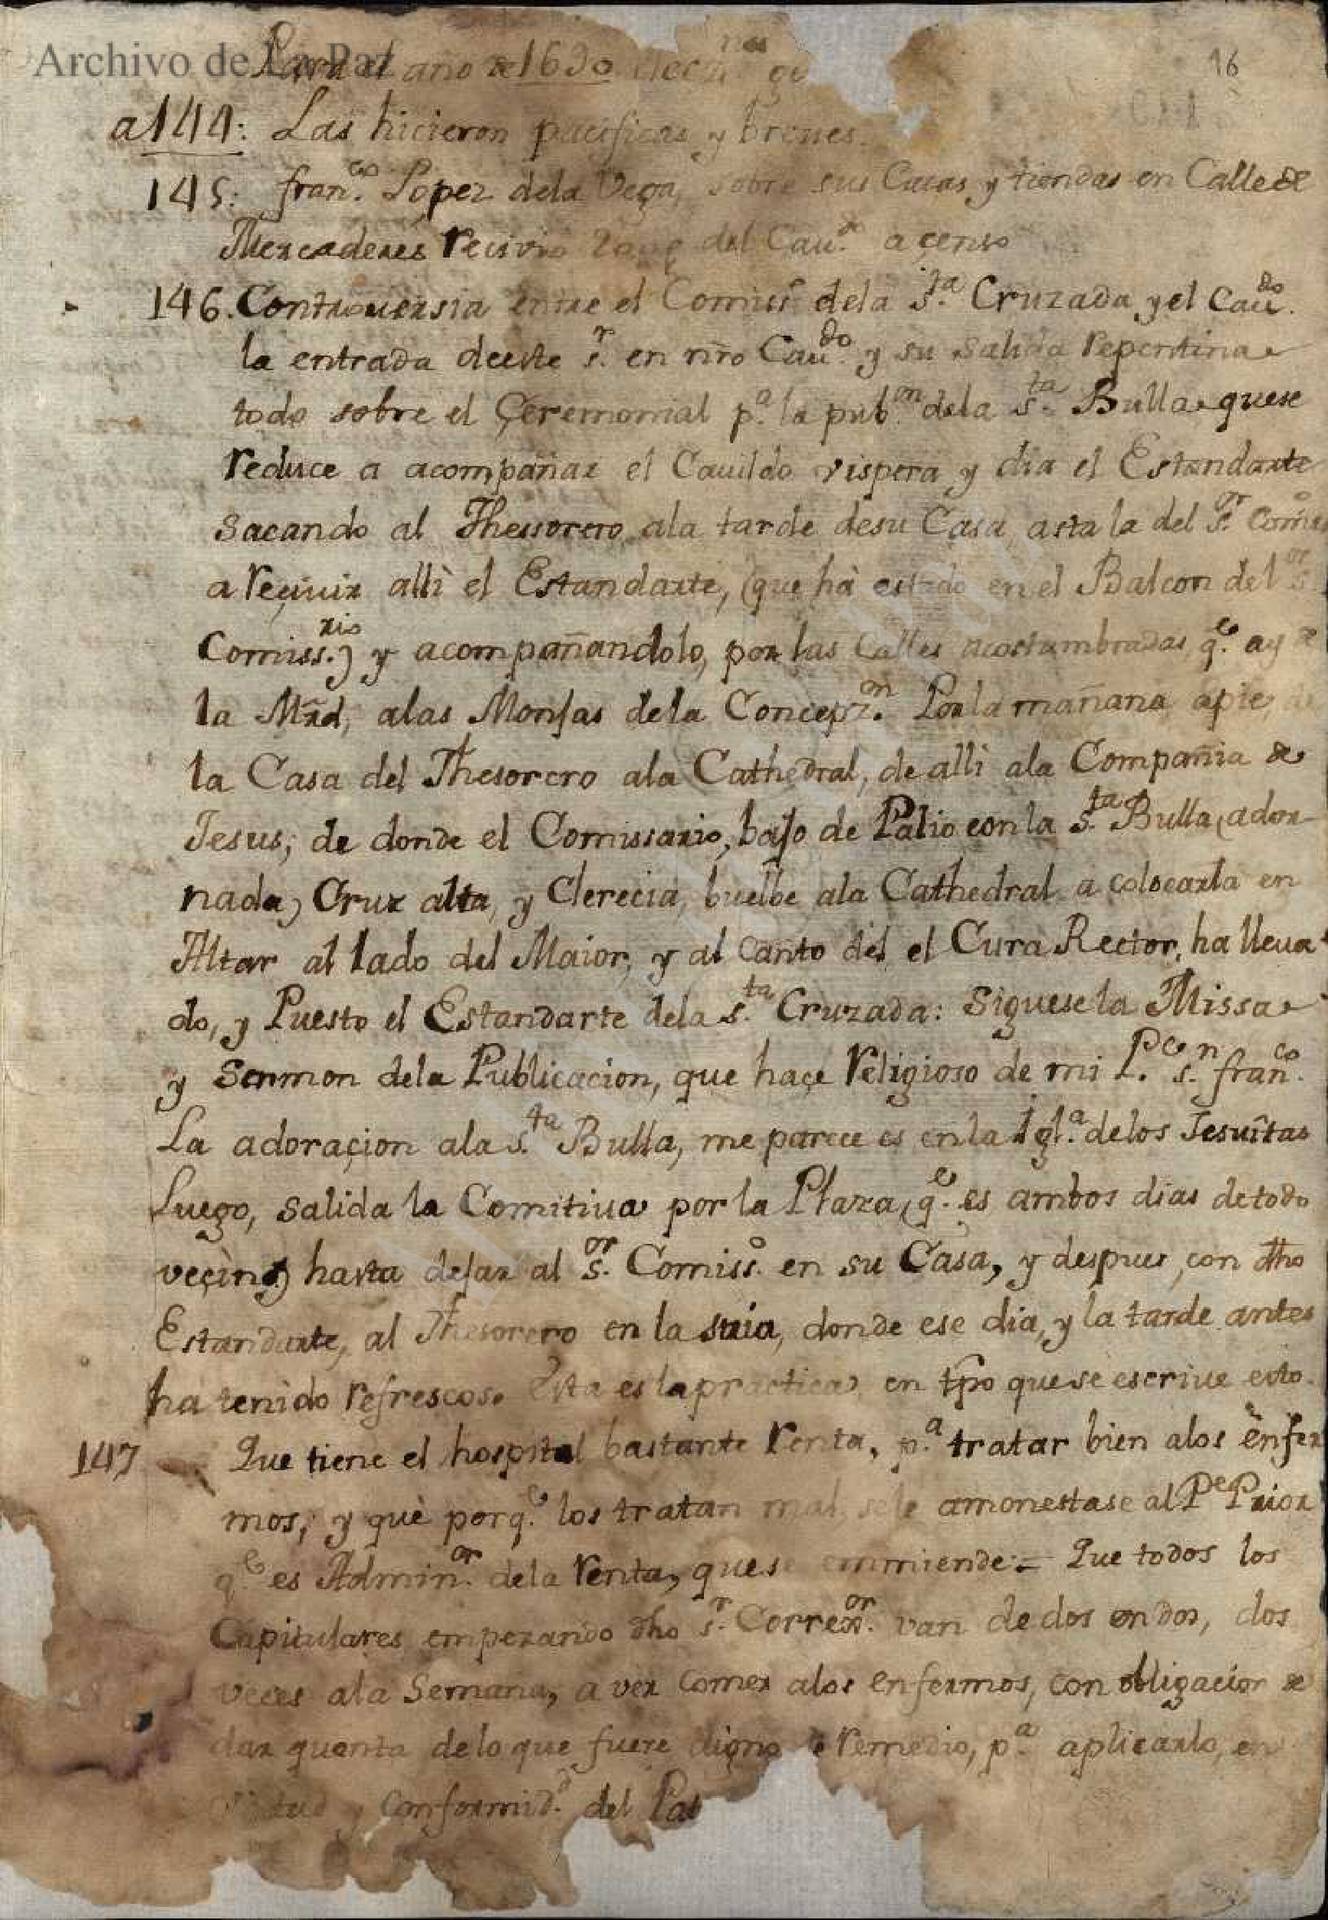 Archivo de La Paz
16
Para el año de 1630 elecz.nes
a 144: Las hicieron pacificas y breues.
145: fran.co Lopez dela Vega, sobre sus Casas y tiendas en Calle de
Mercaderes recivió del Cau.do a çenso
146. Controuersia entre el Comiss.o dela S.ta Cruzada y el Cau.do
la entrada deeste s.r en nr̃o Cau.do y su salida repentina
todo sobre el Çeremonial p.a la pub.on dela S.ta Bulla quese
reduce a acompañar el Cauildo vispera y dia el Estandarte
sacando al Thessorero ala tarde desu Casa asta la del S.or
a reçiuir alli el Estandarte, (que hà estado en el Balcon del S.or
Comiss.rio) y acompañandolo, por las Calles acostumbradas, q.e ay de
la Mr̃d, alas Monjas dela Concepz.on Por la mañana apie, de
la Casa del Thesorero ala Cathedral, de alli ala Compañia de
Jesus; de donde el Comissario, bajo de Palio con la S.ta Bulla (ador-
nada) Cruz alta, y Clerecia, buelbe ala Cathedral a colocarla en
Altar al lado del Maior, y al canto dèl el Cura Rector, ha lleua
do, y Puesto el Estandarte dela S.ta Cruzada: Siguese la Missa
y Sermon dela Publicacion, que haçe Religioso de mi P.e S.n fran.co
La adoraçion ala S.ta Bulla, me parece es en la Igl.a delos Jesuitas
Luego, salida la Comitiua por la Plaza (q.e es ambos dias de todo
veçino) hasta dejar al S.or Comiss.o en su Casa, y despues, con dho
Estandarte, al Thesorero en la suia, donde ese dia, y la tarde antes
ha tenido refrescos. Esta es la practica, en tpo quese escriue esto.
147 Que tiene el hospital bastante renta, p.a tratar bien alos enfer
mos, y què porq.e los tratan mal, sele amonestase al P.e Prior
q.e es Admin.or dela renta, quese emmiende:= Que todos los
Capitulares empezando dho s.r Correx.or van de dos en dos, dos
veces ala Semana, a ver comer alos enfermos, con obligacion de
dar quenta delo que fuere digno de remedio, p.a aplicarlo, en
y conformid.d del